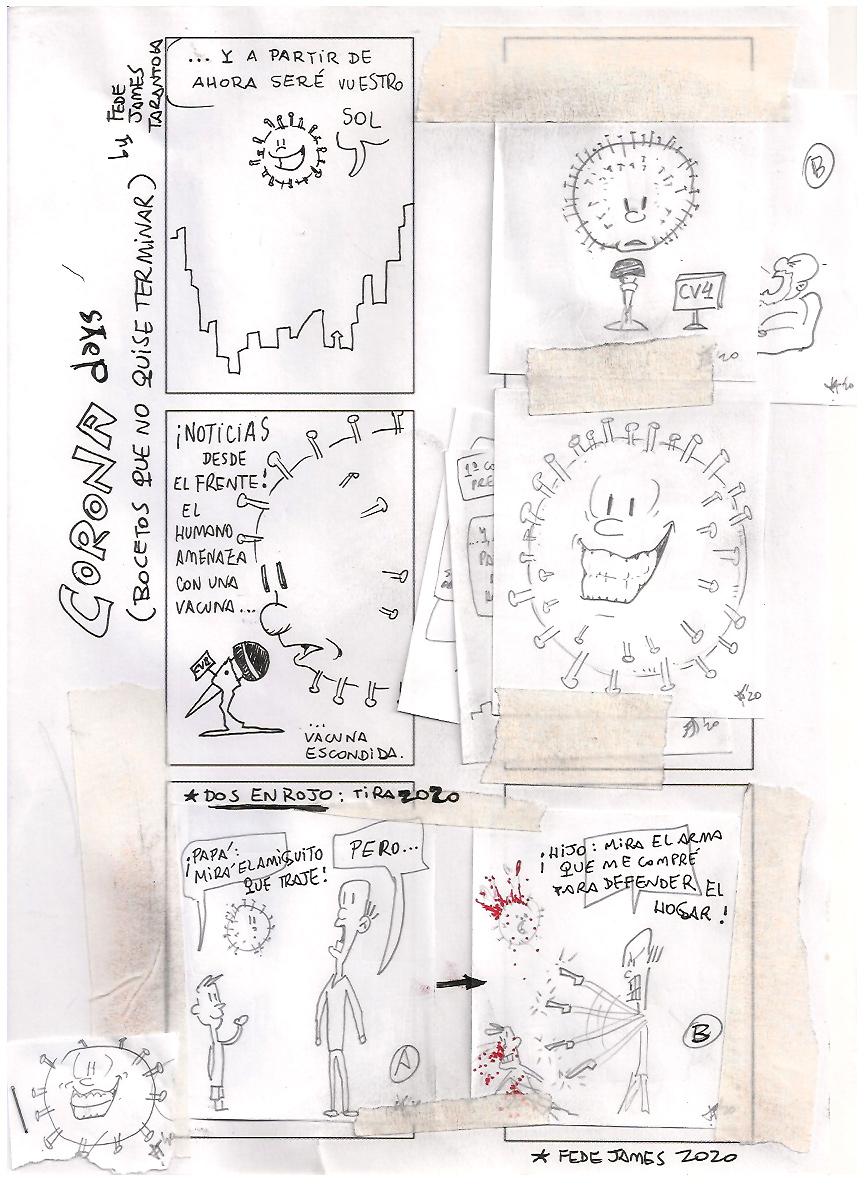 CORONA days
(BOCETOS QUE NO QUISE TERMINAR)
by FEDE
JAMES
TARANTOLA
... Y A PARTIR DE
AHORA SERÉ VUESTRO
SOL
B
CV1
20
20
¡NOTICIAS
DESDE
EL FRENTE!
EL
HUMANO
AMENAZA
CON UNA
VACUNA...
CV1
...
VACUNA
ESCONDIDA.
1ª CO
PRE
...Y,
PA
'20
20
* DOS EN ROJO: TIRA 2020
¡PAPÁ:
¡MIRÁ EL AMIGUITO
QUE TRAJE!
PERO...
A
¡HIJO: MIRA EL ARMA
QUE ME COMPRÉ
PARA DEFENDER EL
HOGAR!
B
* FEDE JAMES 2020